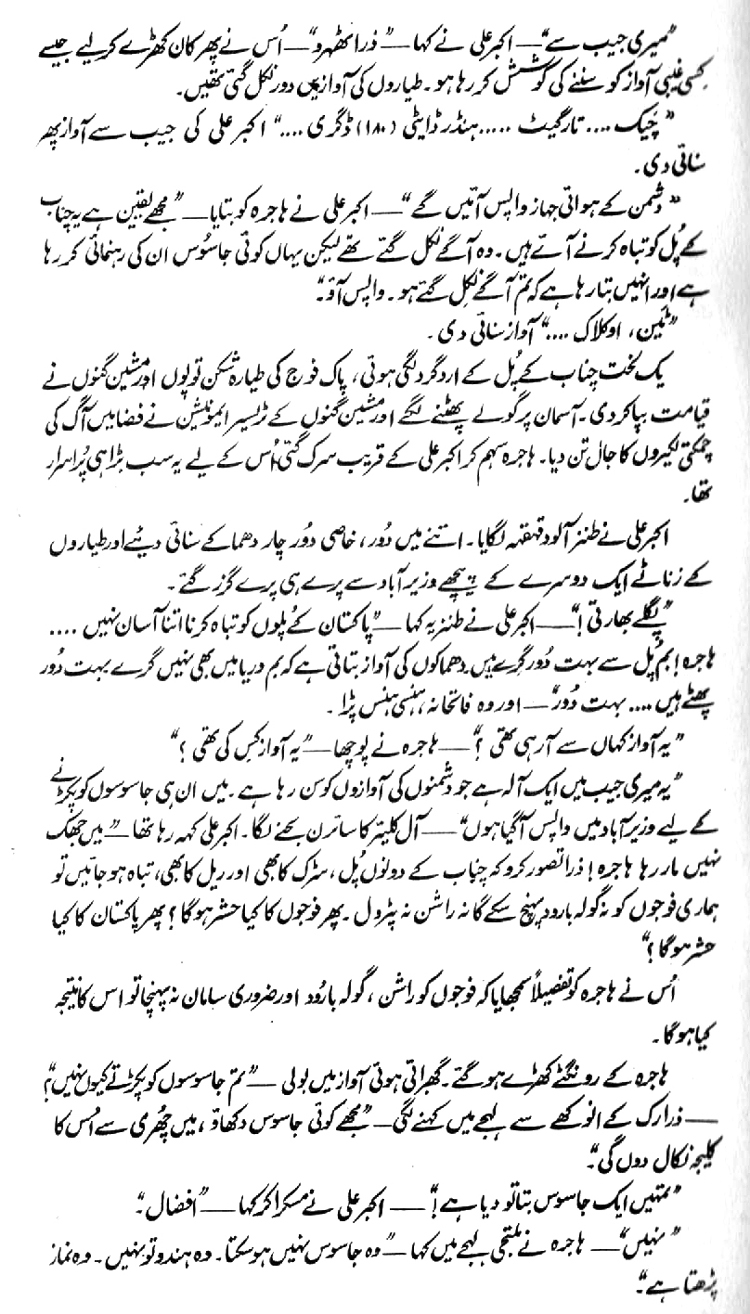 ”میری جیب سے“ — اکبر علی نے کہا — ”ذرا ٹھہرو“ — اُس نے پھر کان کھڑے کر لیے جیسے
کسی غیبی آواز کو سننے کی کوشش کر رہا ہو۔ طیاروں کی آوازیں دور نکل گئی تھیں۔
”چیک .... تارگیٹ ..... ہنڈرڈ ایٹی (۱۸۰) ڈگری ....“ اکبر علی کی جیب سے آواز پھر
سنائی دی۔
”دشمن کے ہوائی جہاز واپس آئیں گے“ — اکبر علی نے ہاجرہ کو بتایا — ”مجھے یقین ہے یہ چناب
کے پُل کو تباہ کرنے آئے ہیں۔ وہ آگے نکل گئے تھے لیکن یہاں کوئی جاسوس ان کی رہنمائی کر رہا
ہے اور انہیں بتا رہا ہے کہ تم آگے نکل گئے ہو۔ واپس آؤ۔“
”ٹین، اوکلاک ....“ آواز سنائی دی۔
یک لخت چناب کے پُل کے ارد گرد لگی ہوئی، پاک فوج کی طیارہ شکن توپوں اور مشین گنوں نے
قیامت بپا کر دی۔ آسمان پر گولے پھٹنے لگے اور مشین گنوں کے ٹریسر ایمونیشن نے فضا میں آگ کی
چمکتی لکیروں کا جال تن دیا۔ ہاجرہ سہم کر اکبر علی کے قریب سرک گئی اُس کے لیے یہ سب بڑا ہی پُراسرار
تھا۔
اکبر علی نے طنز آلود قہقہہ لگایا۔ اتنے میں دُور، خاصی دُور چار دھماکے سنائی دیئے اور طیاروں
کے زناٹے ایک دوسرے کے پیچھے وزیر آباد سے پرے ہی پرے گزر گئے۔
”پگلے بھارتی!“ — اکبر علی نے طنزیہ کہا — ”پاکستان کے پُلوں کو تباہ کرنا اتنا آسان نہیں ....
ہاجرہ! بم پُل سے بہت دُور گرے ہیں۔ دھماکوں کی آواز بتاتی ہے کہ بم دریا میں بھی نہیں گرے بہت دُور
پھٹے ہیں .... بہت دُور“ — اور وہ فاتحانہ ہنسی ہنس پڑا۔
”یہ آواز کہاں سے آ رہی تھی؟“ — ہاجرہ نے پوچھا — ”یہ آواز کس کی تھی؟“
”یہ میری جیب میں ایک آلہ ہے جو دشمنوں کی آوازوں کو سن رہا ہے۔ میں ان ہی جاسوسوں کو پکڑنے
کے لیے وزیر آباد میں واپس آ گیا ہوں“ — آل کلیئر کا سائرن بجنے لگا۔ اکبر علی کہہ رہا تھا — ”میں جھک
نہیں مار رہا ہاجرہ! ذرا تصور کرو کہ چناب کے دونوں پُل، سڑک کا بھی اور ریل کا بھی، تباہ ہو جائیں تو
ہماری فوجوں کو نہ گولہ بارود پہنچ سکے گا نہ راشن نہ پٹرول۔ پھر فوجوں کا کیا حشر ہو گا؟ پھر پاکستان کا کیا
حشر ہو گا؟“
اُس نے ہاجرہ کو تفصیلاً سمجھایا کہ فوجوں کو راشن، گولہ بارود اور ضروری سامان نہ پہنچا تو اس کا نتیجہ
کیا ہو گا۔
ہاجرہ کے رونگٹے کھڑے ہو گئے۔ گھبرائی ہوئی آواز میں بولی — ”تم جاسوسوں کو پکڑتے کیوں نہیں؟“
— ذرا رک کے انوکھے سے لہجے میں کہنے لگی — ”مجھے کوئی جاسوس دکھاؤ، میں چھری سے اُس کا
کلیجہ نکال دوں گی۔“
”تمہیں ایک جاسوس بتا تو دیا ہے!“ — اکبر علی نے مسکرا کر کہا — ”افضال۔“
”نہیں“ — ہاجرہ نے ملتجی لہجے میں کہا — ”وہ جاسوس نہیں ہو سکتا۔ وہ ہندو تو نہیں۔ وہ نماز
پڑھتا ہے۔“